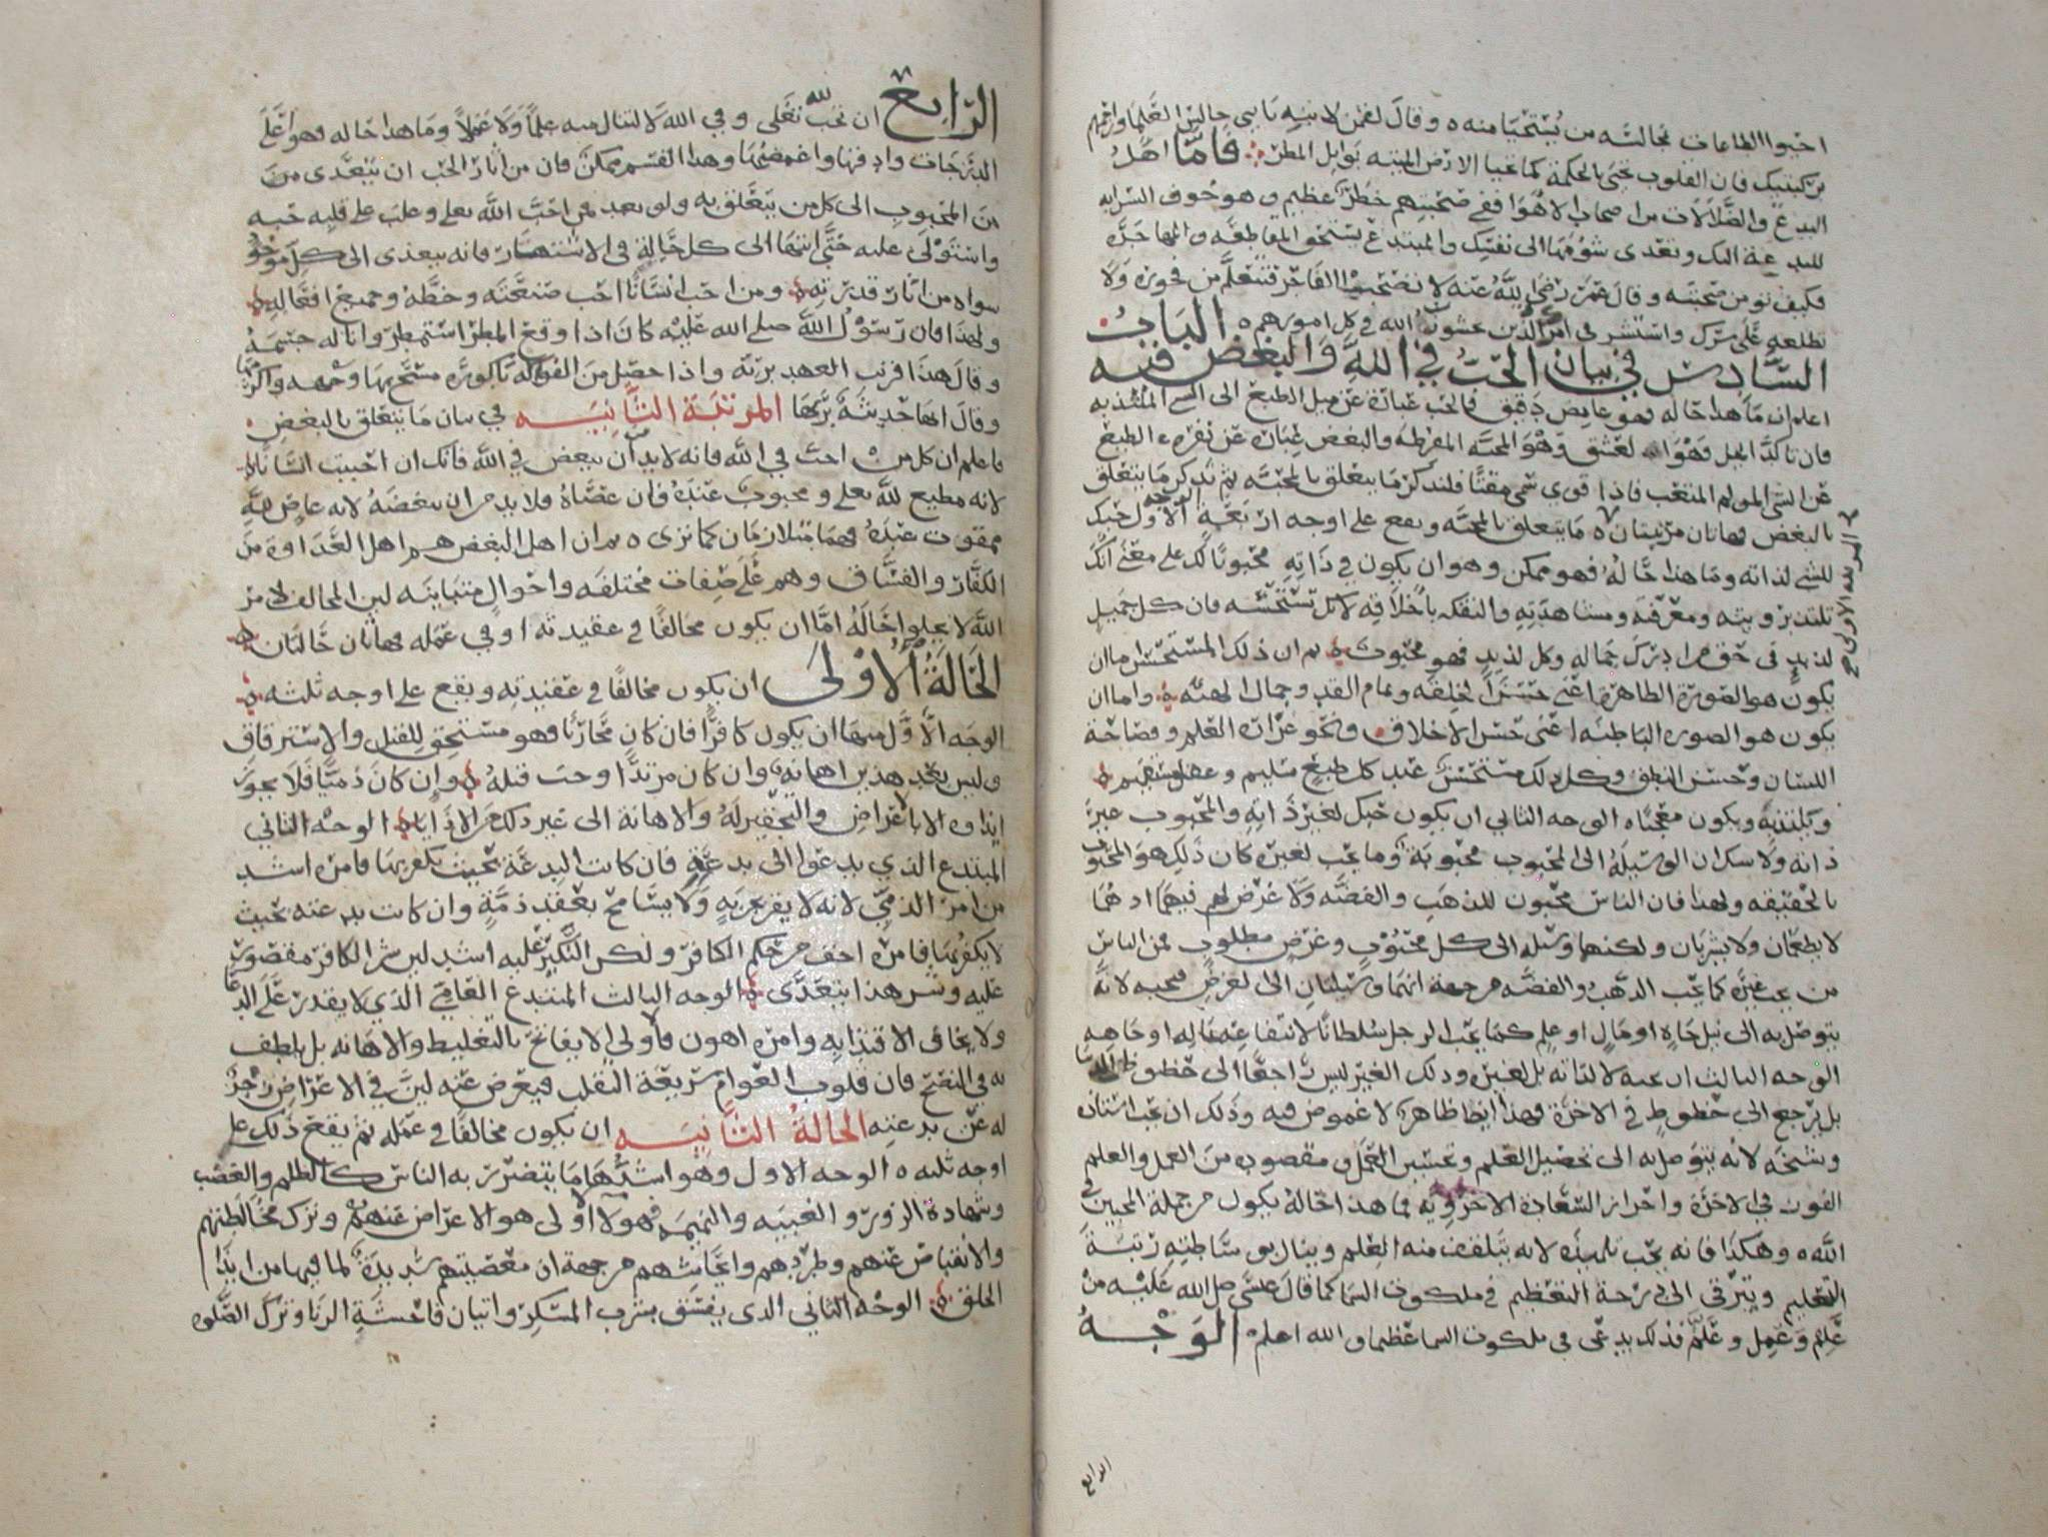 احيوا الطاعات مجالسة من يستحيا منه ٥ وقال لقمن لابنه يا بني جالس العلما وزاحمهم
بركبتيك فان القلوب تحيى بالحكمة كما تحيا الارض الميتة بوابل المطر فاما اهل
البدع والضلالات من اصحاب الاهوا ففي صحبتهم خطر عظيم وهو خوف السراية
للبدعة اليك وتعدى شومها الى نفسك والمبتدع يستحق المقاطعة والمهاجرة
فكيف تومن صحبته وقال عمر رضي الله عنه لا تصحبوا الفاجر فتتعلم من فجوره ولا
تطلعه على سرك واستشر في امرك الذين يخشون الله في كل امورهم ٥ الباب
السادس في بيان الحب في الله والبغض فيه
اعلم ان ما هذا حاله فهو غامض دقيق فالحب عبارة عن ميل الطبع الى الشي المستلذ به
فان تاكد الميل فهو العشق وهو المحبة المفرطة والبغض عبارة عن نفرة الطبع
عن الشي المولم المتعب فاذا قوي سمي مقتا فلنذكر ما يتعلق بالمحبة ثم نذكر ما يتعلق
بالبغض فهاتان مرتبتان ٥ ما يتعلق بالمحبة ويقع على اوجه اربعة الوجه الاول حبك
المرتبة الاولى
للشي لذاته وما هذا حاله فهو ممكن وهو ان يكون في ذاته محبوبا لك على معنى انك
تلتذ برويته ومعرفته ومشاهدته والتفكه باخلاقه لاجل تستحسنه فان كل جميل
لذيذ في حق من ادرك جماله وكل لذيذ فهو محبوب ثم ان ذلك المستحسن اما ان
يكون هو الصورة الظاهرة اعني حسن الخلقة وتمام القد وجمال الهيئة واما ان
يكون هو الصورة الباطنة اعني حسن الاخلاق ونحو غزارة العلم وفصاحة
اللسان وحسن النطق وكل ذلك مستحسن عند كل طبع سليم وعقل مستقيم
ويلتذ به ويكون معجبا ٥ الوجه الثاني ان يكون حبك لغير ذاته والمحبوب غير
ذاته ولا سك ان الوسيلة الى المحبوب محبوبة وما يحب لغيره كان ذلك هو المحبوب
بالحقيقة ولهذا فان الناس يحبون للذهب والفضة ولا غرض لهم فيهما اذ هما
لا يطعمان ولا يشربان ولكنهما وسيلة الى كل محبوب وغرض مطلوب فمن الناس
من يحب غيره كما يحب الذهب والفضة من جهة انهما وسيلتان الى الغرض فيحبه لانه
يتوصل به الى نيل جاه او مال او علم كما يحب الرجل سلطانا لانتفاعه بماله او جاهه
الوجه الثالث ان يحبه لا لذاته بل لغيره وذلك الغير ليس راجعا الى حظوظ الدنيا
بل يرجع الى حظوظ في الاخرة فهذا ايضا ظاهر لا غموض فيه وذلك ان يحب استاذه
وشيخه لانه يتوصل به الى تحصيل العلم وتحسين العمل ومقصوده من العمل والعلم
الفوز في الاخرة واحراز السعادة الاخروية فما هذا حاله يكون من جملة المحبين في
الله ٥ وهكذا فانه يحب تلميذه لانه يتلقف منه العلم وينال بوساطته رتبة
التعليم ويترقى الى درجة التعظيم في ملكوت السما كما قال عيسى صلى الله عليه من
علم وعمل وعلم فذلك يدعى في ملكوت السما عظيما والله اعلم ٥ الوجه
الرابع
الرابع ان تحب لله تعلى وفي الله لا لتنال منه علما ولا عملا وما هذا حاله فهو اعلى
الدرجات وادقها واغمضها وهذا القسم ممكن فان من اثار الحب ان يتعدى من
من المحبوب الى كل من يتعلق به ولو بعد فمن احب الله تعلى وغلب على قلبه حبه
واستولى عليه حتى انتها الى كل حالة في الاستهتار فانه يتعدى الى كل موجود
سواه من اثار قدرته ٥ ومن احب انسانا احب صنعته وخطه وجميع افعاله
ولهذا فان رسول الله صلى الله عليه كان اذا وقع المطر استمطر وانا له جسمه
وقال هذا قريب العهد بربه واذا حصل من الفواكه باكورة مسح بها وجهه واكرمها
وقال انها حديثة بربها المرتبة الثانيه في بيان ما يتعلق بالبغض
فاعلم ان كل من احب في الله فانه لابد من ان يبغض في الله فانك ان احببت انسانا
لانه مطيع لله تعلى ومحبوب عنده فان عصاه فلا بد من ان تبغضه لانه عاص لله
ممقوت عنده فهما متلازمان كما ترى ٥ ثم ان اهل البغض هم اهل العداوة من
الكفار والفساق وهم على صفات مختلفة واحوال متباينة لان المخالف لامر
الله لا يخلوا حاله اما ان يكون مخالفا في عقيدته او في عمله فهاتان حالتان
الحالة الاولى ان يكون مخالفا في عقيدته ويقع على اوجه ثلثه
الوجه الاول منها ان يكون كافرا فان كان محاربا فهو مستحق للقتل والاسترقاق
وليس بعد هذين اهانة وان كان مرتدا وجب قتله وان كان ذميا فلا يجوز
ايذاه الا بالاعراض والتحقير له والاهانة الى غير ذلك من الاذايا الوجه الثاني
المبتدع الذي يدعوا الى بدعته فان كانت البدعة بحيث يكفر بها فامره اشد
من امر الذمي لانه لا يقر بجزية ولا يسامح بعقد ذمة وان كانت بدعته بحيث
لا يكفر بها فامره اخف من حكم الكافر ولكن النكير عليه اشد لان شر الكافر مقصور
عليه وشر هذا يتعدى الوجه الثالث المبتدع العامي الذي لا يقدر على الدعا
ولا يخاف الاقتدا به وامره اهون فالاولى الا يفاتح بالتغليظ والاهانه بل يلطف
به في النصح فان قلوب العوام سريعة التقلب فيعرض عنه لين في الاعراض زجر
له عن بدعته الحالة الثانيه ان يكون مخالفا في عمله ثم يقع ذلك على
اوجه ثلثه ٥ الوجه الاول وهو اشدها ما يتضرر به الناس كالظلم والغصب
وشهادة الزور والغيبه والنميمه فهولا الاولى هو الاعراض عنهم وترك مخالطتهم
والانقباض عنهم وطردهم وايحاشهم من جهة ان معصيتهم شديدة لما فيها من ايذا
الخلق الوجه الثاني الذى يفسق بشرب المسكر واتيان فاحشة الزنا وترك الصلوه